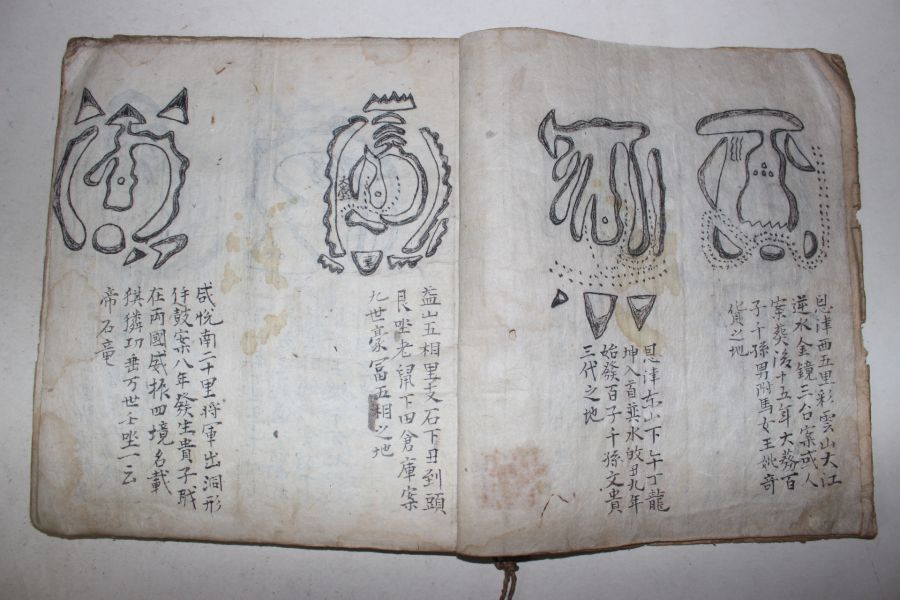 恩津西五里彩雲山大江
逆水金鏡三台案或人
案葬后十五年大發百
子千孫男駙馬女王妣奇
貨之地
恩津右山下午丁龍
坤入首巽水的丑九年
始發百子千孫文貴
三代之地
益山五相里支石下丑到頭
艮坐老鼠下田倉庫案
九世富五相之地
咸悅南二十里將軍出洞形
鼓案八年發生貴子
在兩國威振四境名載
麒麟功垂万世壬坐一云
帝石竜